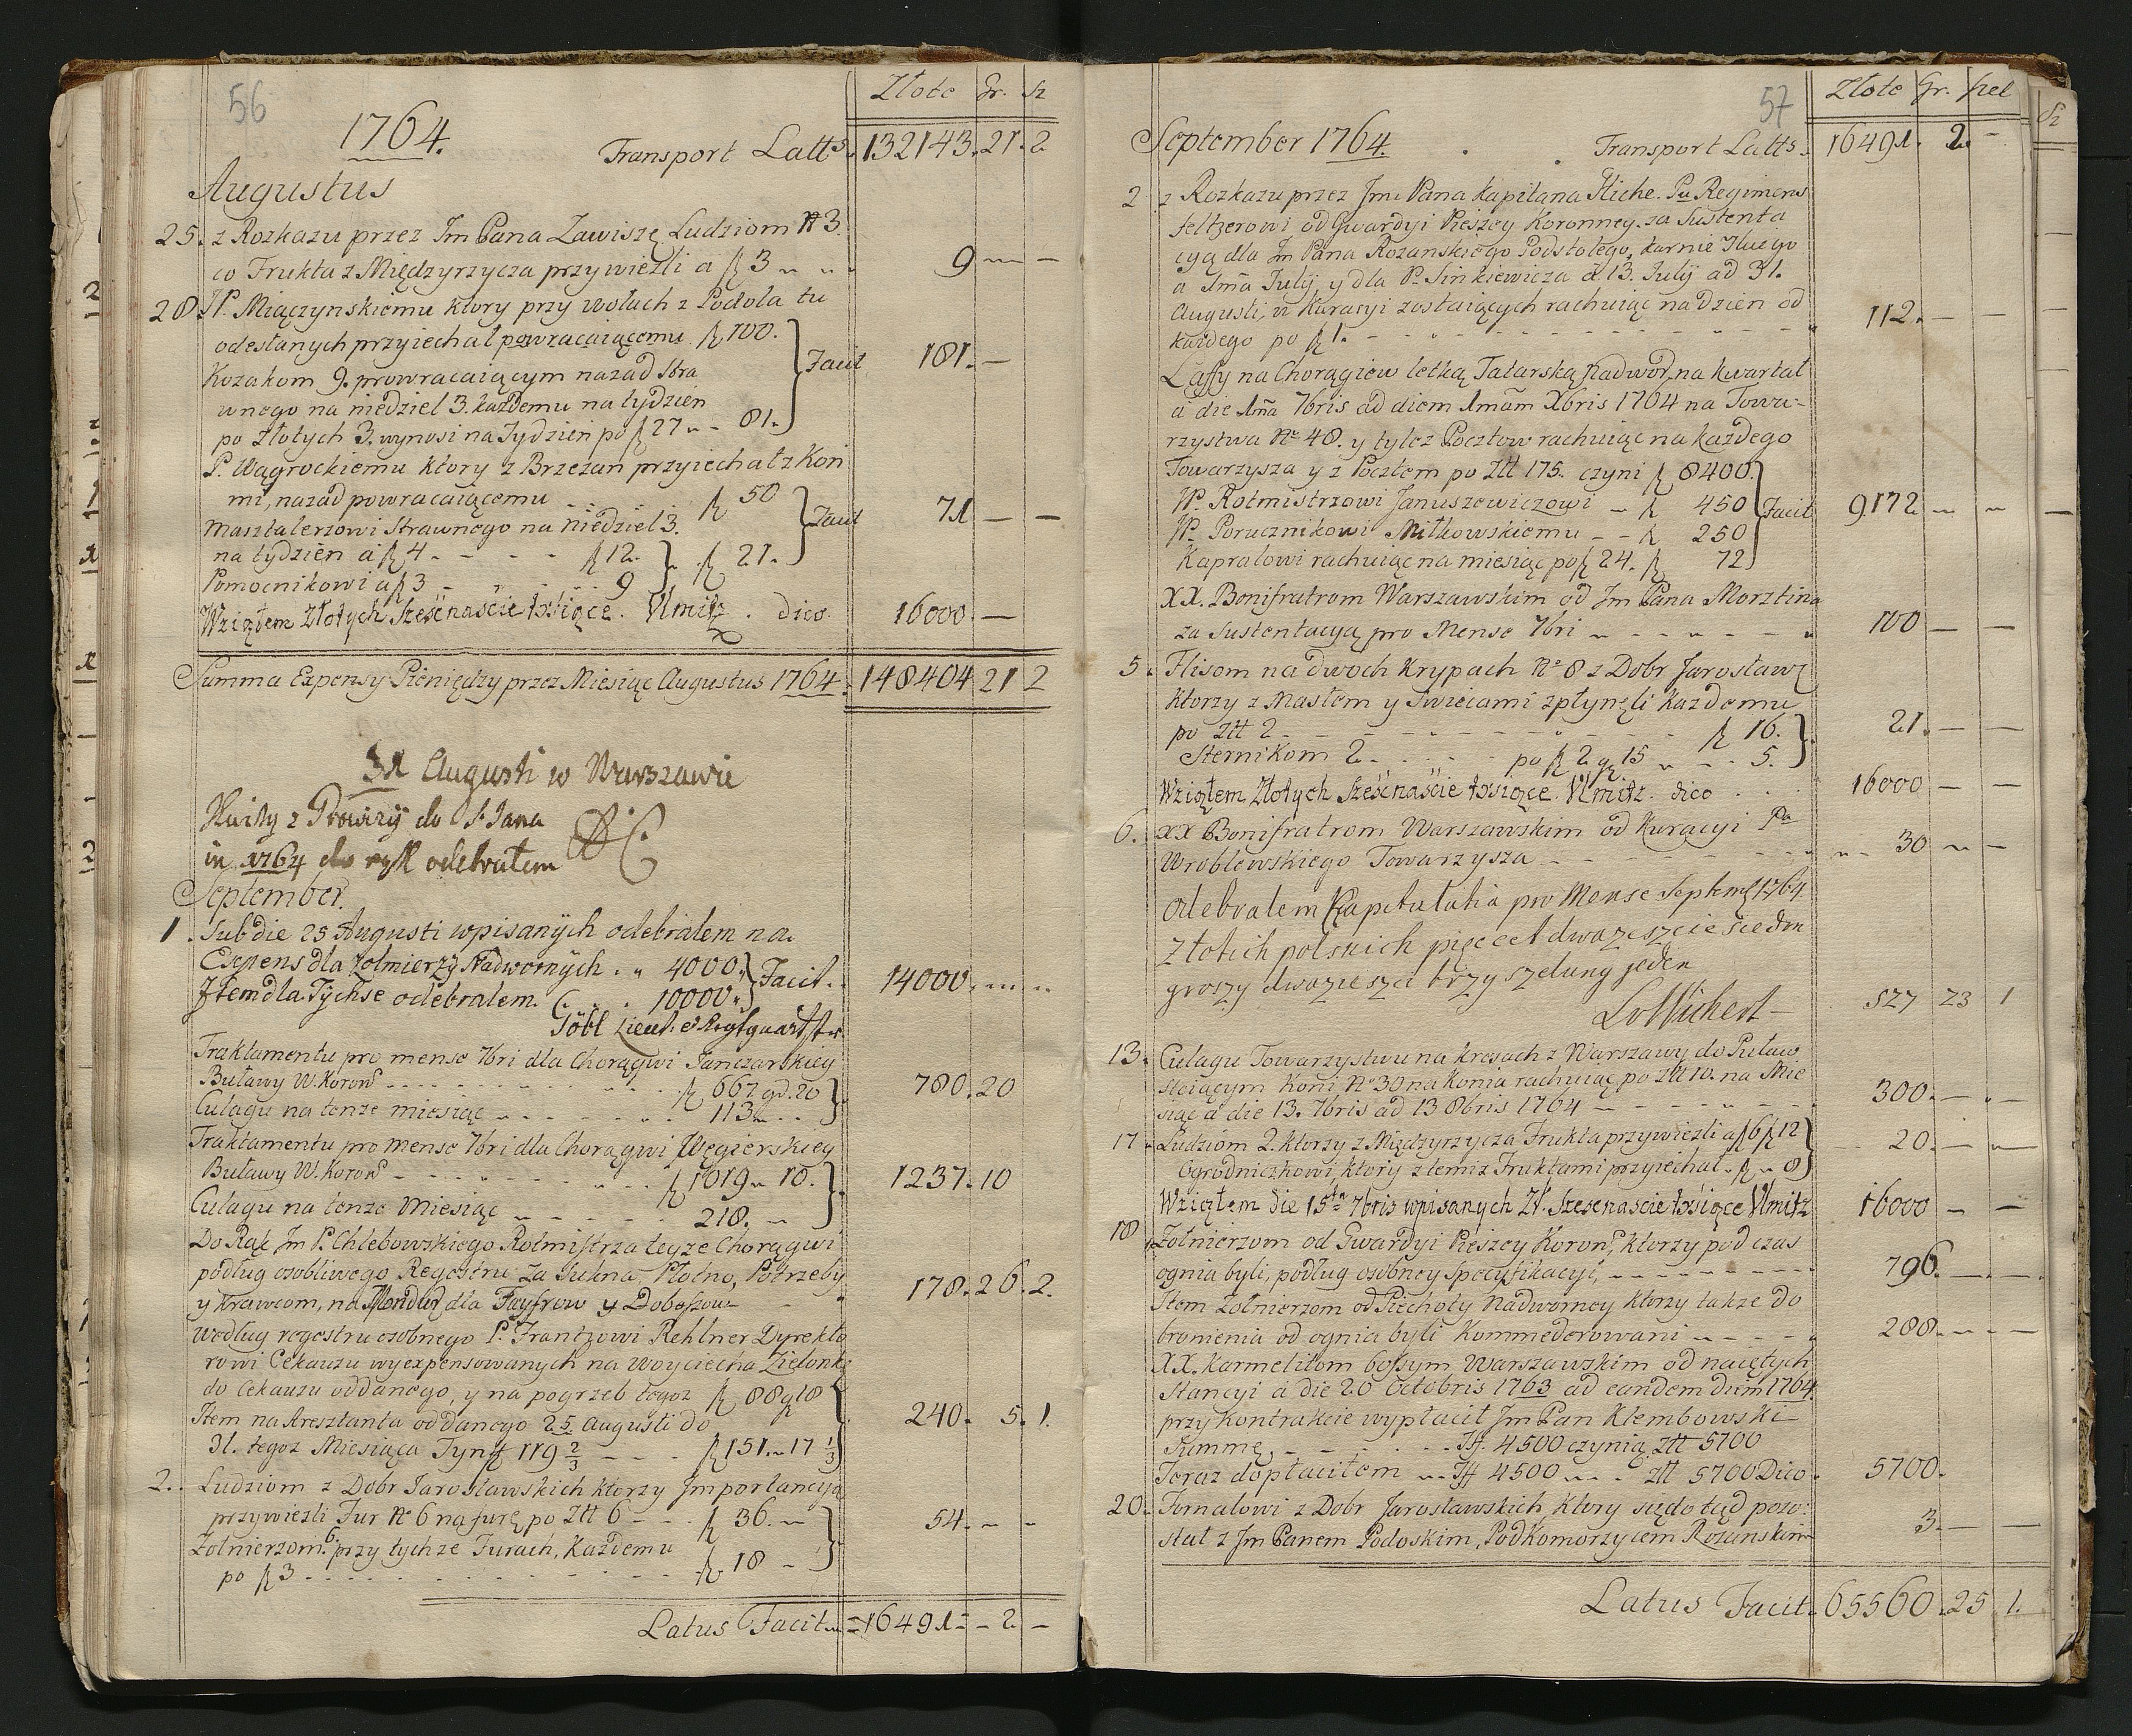 56
Złote Gr. Sz
1764. Transport Latts. 132143. 21. 2
Augustus
25. z Rozkazu przez Jm Pana Zawiszę Ludziom N 3.
co Frukta z Międzyrzycza przywiezli a f 3 9 — —
28. W. Miączynskiemu ktory przy wołach z Podola tu
odesłanych przyiechał powracaiącemu f 100.
Kozakom 9. prowracaiącym nazad Stra Facit 181. —
wnego na niedziel 3. każdemu na tydzien
po złotych 3. wynosi na Tydzien po f 27 - - 81.
P. Wągrockiemu ktory z Brzezan przyiechał z Koń
mi, nazad powracaiącemu f 50
Masztalerzowi Strawnego na niedziel 3. Facit 71 — —
na tydzien a f 4 - - - f 12. f 21.
Pomocnikowi a f 3 - - - 9
Wziąłem Złotych Szesćnascie tysięce. Ulmitz. dico. 16000. —
Summa Expensy Pieniędzy przez Miesiąc Augustus 1764. 148404 21 2
31 Augusti w Warszawie
Kwity z Prowizij do S. Jana
in 1764 do rąk odebrałem
September.
1. Sub die 25 Augusti wpisanych odebrałem na
Expens dla Zołnierzy Nadwornych. 4000. Facit. 14000.
Item dla Tychse odebrałem. 10000.
Töbl Lieut. et Regtsquartstr
Traktamentu pro mense 7bri dla Chorągwi Janczarskiey
Buławy W. Koron - - - f 667 gr. 20 780. 20
Culagu na tenze miesiąc - - - 113
Traktamentu pro mense 7bri dla Chorągwi Węgierskiey
Buławy W. Koron - - - f 1019 10. 1237. 10
Culagu na tenze Miesiąc - - - 218.
Do Rąk Jm P. Chlebowskiego Rotmistrza teyze Chorągwi
podług osobliwego Regestru za Sukna, Płotno, Potrzeby 178. 26. 2.
y Krawcom, na Mondur dla Fayfrow y Doboszow
według regestru osobnego P. Frantzowi Rehlner Dyrekto
rowi Cekauzu wyexpensowanych na Woyciecha Zielonk
do Cekauzu oddanego, y na pogrzeb tegoz f 88 g 18
Item na Aresztanta oddanego 25. Augusti do 240. 5. 1.
31. tegoz Miesiąca Tynf 119 2/3 - - - f 151. 17 1/3
2. Ludziom z Dobr Jarosławskich ktorzy Importancyą
przywiezli Fur N 6 na furę po Ztt 6 - - - f 36. 54. - -
Zołnierzom 6. przy tychze Furach, Kazdemu
po f 3 - - - f 18 -
Latus Facit 16491 - 2 —
57
Złote Gr. szel
Sz
September 1764. Transport Latts. 16491. 2. -
2 z Rozkazu przez Jmc Pana Kapitana Hiche. Pu Regimens
feltzerowi od Gwardyi Pieszey Koronney. za Sustenta
cyą dla Jm Pana Rozanskiego Podstolego,
a 1ma Julij, y dla P. Sinkiewicza a 13. Julij ad 31.
Augusti, w Kuracyi zostaiących rachuiąc na dzien od
każdego po f 1. - - - 112. — —
Laffy na Chorągiew letką Tatarską Nadwor. na kwartał
a die 1ma 7bris ad diem 1mam Xbris 1764 na Towa-
rzystwa No 48. y tylez Pocztow rachuiąc na każdego
Towarzysza y z Pocztem po Ztt 175. czyni f 8400.
W. Rotmistrzowi Januszewiczowi - f 450 Facit 9172
W. Porucznikowi Mitkowskiemu - - f 250
Kapralowi rachuiąc na miesiąc po f 24. f 72
XX. Bonifratrom Warszawskim od Jm Pana Morztina
za Sustentacyą pro Mense 7bri - - - 100 — —
5. Flisom na dwoch Krypach No 8 z Dobr Jarosław
ktorzy z Masłem y Swiecami zpłynęli Kazdemu
po ztt 2 - - - f 16. 21. — —
Sternikom 2 - - - po f 2 g 15 - - 5.
Wziąłem Złotych Szesćnascie tysięce. Ulmitz. dico . . . 16000 — —
6. XX Bonifratrom Warszawskim od Kuracyi Pa
Wroblewskiego Towarzysza - - - 30 — —
Odebralem Kapitulatia pro Mense Septemb 1764
złotich polskich pięcet dwazeszcie siedm
groszy dwazieszci trzy szelung jeden
527 23 1
13. Culagu Towarzystwu na kresach z Warszawy do Puław
stoiącym Koni No 30 na Konia rachuiąc po Ztt 10. na Mie
siąc a die 13. 7bris ad 13 8bris 1764 — - - - 300. — —
17. Ludziom 2. ktorzy z Międzyrzycza Frukta przywiezli a f 6 f 12 20. — —
Ogrodniczkowi, ktory z temiz Fruktami przyiechał. f 8
Wziąłem die 15ta 7bris wpisanych Zł. Szesćnascie tysięce Ulmitz 16000 — —
18. Zołnierzom od Gwardyi Pieszey Koron, ktorzy podczas
ognia byli, podług osobney Specyfikacyi, - - - 796. — —
Item Zołnierzom od Piechoty Nadworney ktorzy takze do
bronienia od ognia byli Kommederowani - - - 288. — —
XX. Karmelitom bossym Warszawskim od naiętych
Stancyi a die 20 Octobris 1763 ad eandem diem 1764
przy Kontrakcie wypłacił Jm Pan Klembowski
Summę, - - - Tff. 4500 czynią Ztt 5700
Teraz dopłaciłem Tff 4500 ztt 5700 Dico. 5700.
20. Fornalowi z Dobr Jarosławskich, ktory się do tąd pozo:
stał z Jm Panem Podoskim, PodKomorzycem Rozanskim 3. — —
Latus Facit. 65560. 25 1.